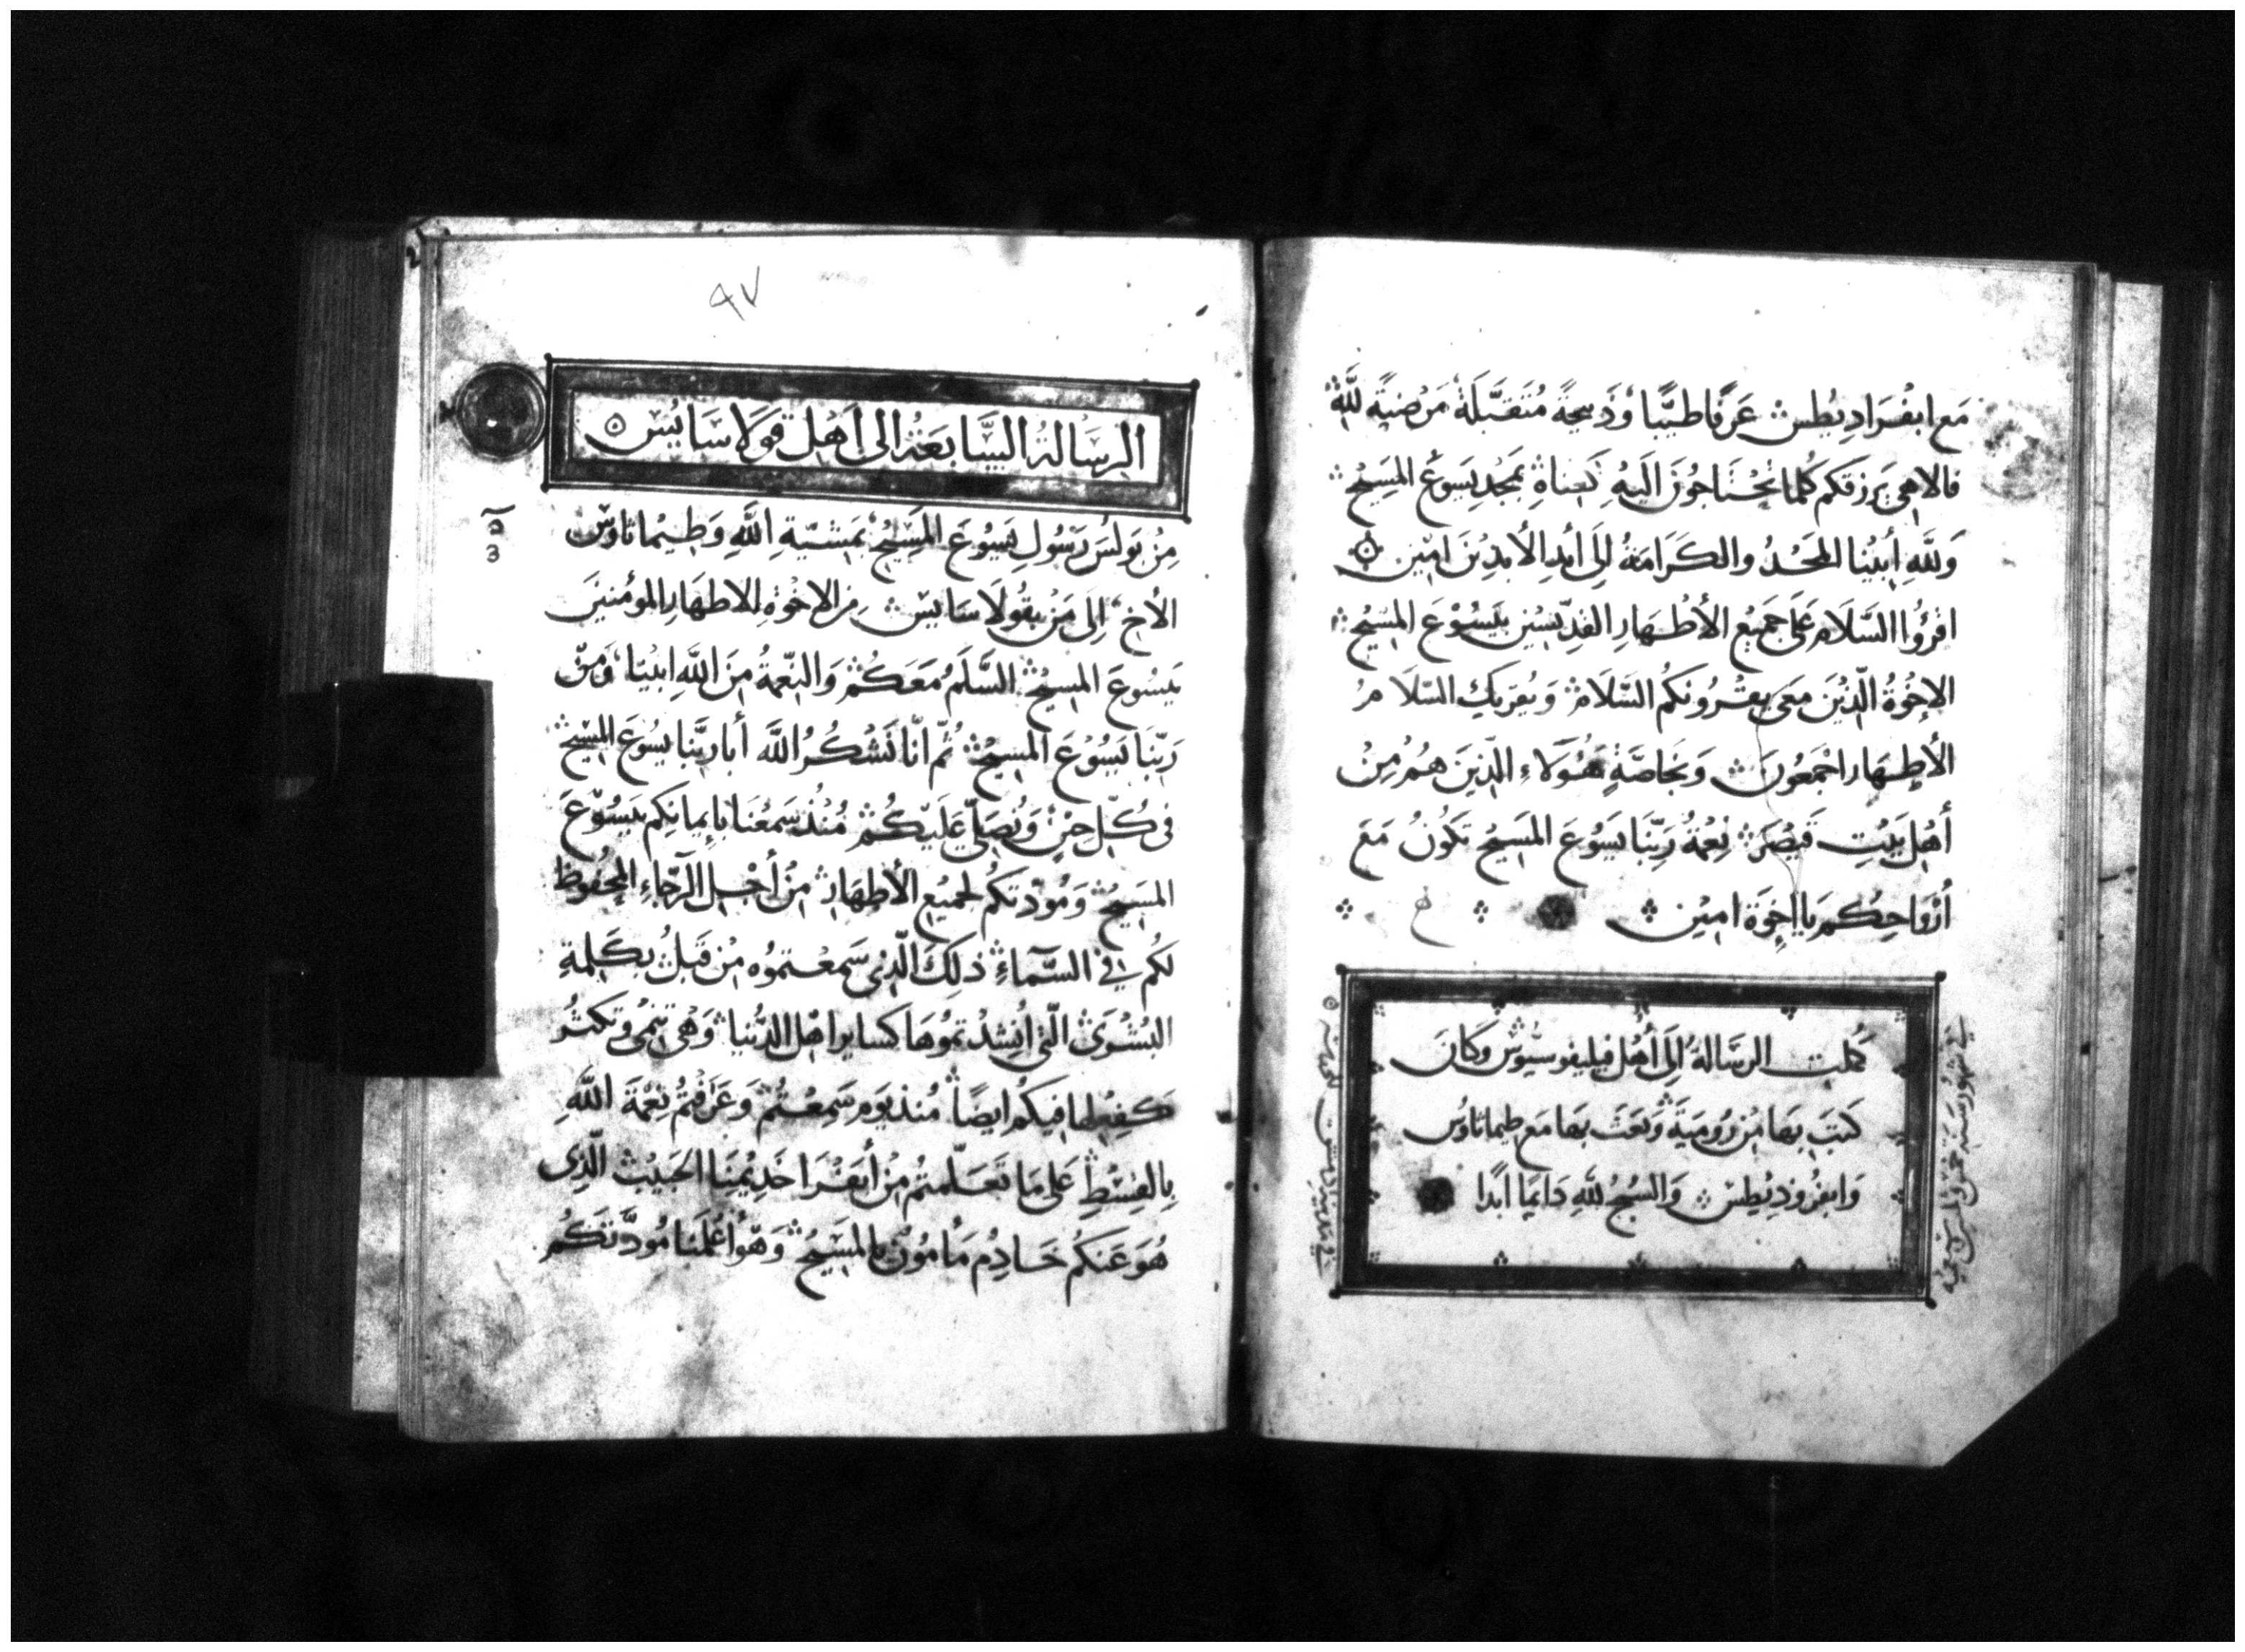 مَع ابفْرَادِيطُس عَرْفًا طيّبًا وَذَبيحَةً مُتَقَبَّلَةً مَرْضيَةً لِلَّهِ
فالاهى يَرزقكم كُلما تحْتَاجُوْنَ الَيهِ كَغناهُ بمَجْدِ يَسوعَ المَسِيْح
وَللَّهِ أَبيْنا المَجْدُ والكَرَامَةُ إِلَى أبدِ الأبدِيْنَ امِيْن
اقرؤُا السَّلَام عَلَى جَميْع الأَطْهَارِ القدّيسْين بيَسُوْعَ المَسِيْح
الإخْوةُ الَّذيْنَ معَى يقْرُونكُم السَّلَامْ وَيُقريكم السّلَامُ
الأَطْهَار اجْمَعُونَ وَبخاصَّةٍ هَؤُلَاءِ الّذِينَ هُمْ مِنْ
أَهْل بَيْتِ قَيْصَرْ نِعْمَةُ رَبِّنَا يَسُوعَ المَسِيْح تكُوْنُ مَعَ
أرْوَاحِكُم يَا إخوَة امِيْن
كملت الرسَّالةُ إلَى أَهْل فيليفوسيُوسْ وكَانَ
كتبَ بهَا مِن رُوميَةَ وَبَعَثَ بهَا مَع طيماثاوُس
وَابفرُوديْطِسْ وَالسُبْحُ للهِ دَايمًا ابَدًا
٩٧
الرسَالة السَّابعَة الى اهْل قوَلَاسَايُسْ
مِنْ بَولسَ رَسُولِ يَسُوعَ المَسِيْح بمَشيّةِ اللَّهِ وَطِيْماثاوُسْ
الأخ إلَى مَنْ بقُولَاسَايسْ مِنَ الاخْوةِ الاطهَارِ المومْنيْنَ
بيَسُوعَ المسِيْح السَّلَمُ مَعَكُمْ وَالنِّعْمةُ مِنَ اللَّهِ ابيْنا وَمِنْ
رَبّنا يَسُوْعَ المسِيْح ثُمّ انّا نَشْكُرُ اللَّه أَبا رَبَّنا يَسُوعَ المسِيْح
فى كُلّ حِيْن وَنُصَلّي عَلَيْكُمْ مُنْذُ سَمعْنَا بإيمانكِم بيَسُوْعَ
المَسِيْح وَمُودتكُم لجَميْع الأطهَار مِنْ أَجْل الرّجَاءِ المحْفُوظ
لكُم في السَّمآءِ ذلِكَ الّذى سَمعْتموُه مِنْ قَبلُ بكَلِمَةِ
البُشْرَى الّتى انْشدْتمُوهَا كسَاير اهْل الدُّنيا وَهْى تنمى وَتكثرُ
كفعْلها فيكُم ايضًا مُنذ يَوم سَمِعْتُمْ وَعَرَفْتُمْ نِعْمَة اللَّهِ
بِالقسْطِ عَلى مَا تَعَلّمتُمْ مِنْ أبَفْرَا خَدِيْمِنَا الحَبيْب الّذِى
هُوَ عَنكُم خَادِمٌ مَأمُونٌ بالمَسِيْح وَهُوَ أعْلمَنا مُودَّتَكُمْ